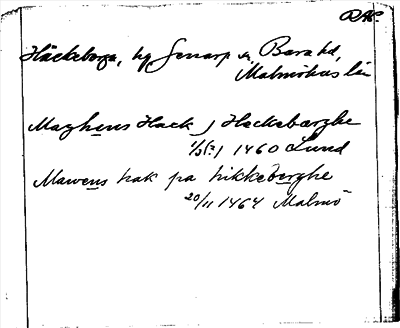 RAP.
Häckeberga, hg, Genarp sn, Bara hd,
Malmöhus län
Maghens Hack j Heckebærghe
1/3(?) 1460 Lund
Mawens hak pa hikkeberghe
20/11 1464 Malmö